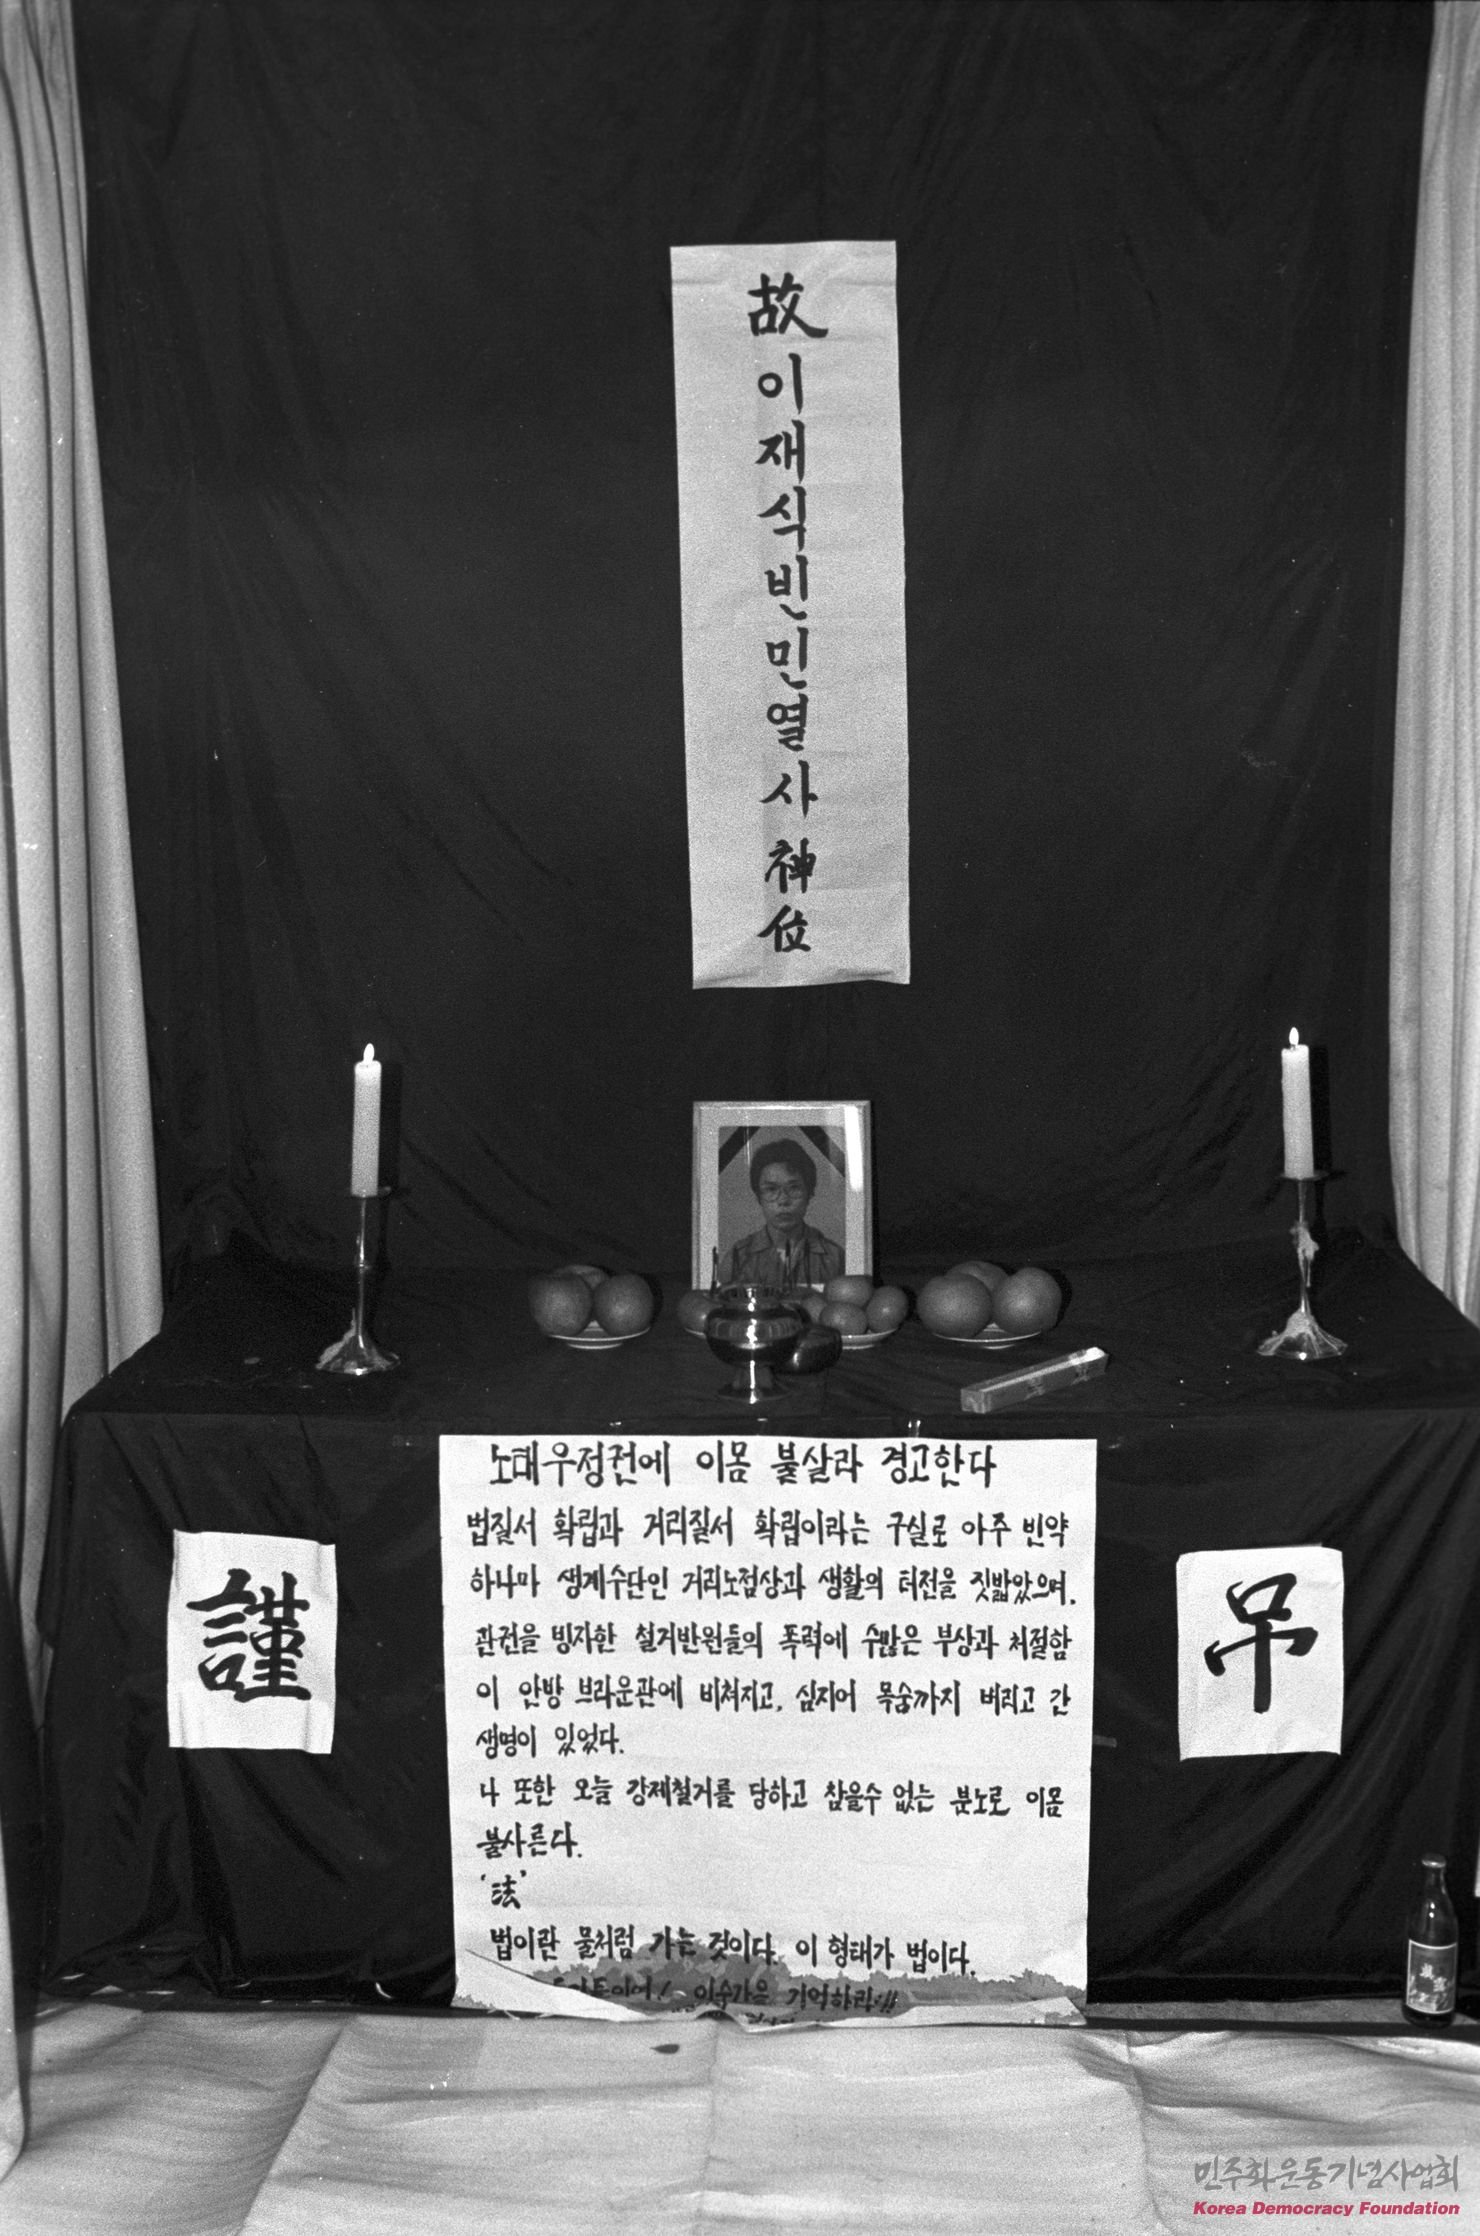 故이재식빈민열사神位
노태우정권에 이몸 불살라 경고한다
법질서 확립과 거리질서 확립이라는 구실로 아주 빈약
하나마 생계수단인 거리노점상과 생활의 터전을 짓밟았으며.
관권을 빙자한 철거반원들의 폭력에 수많은 부상과 처절함
이 안방 브라운관에 비쳐지고, 심지어 목숨까지 버리고 간
생명이 있었다.
나 또한 오늘 강제철거를 당하고 참을수 없는 분노로 이몸
불사른다.
'法'
법이란 물처럼 가는 것이다. 이 형태가 법이다.
기억하라!!!
謹
弔
민주화운동기념사업회
Korea Democracy Foundation